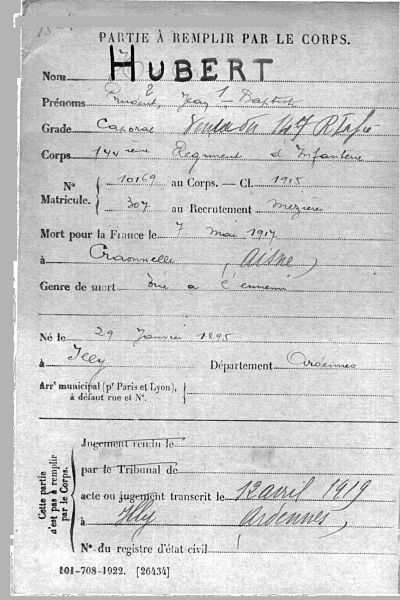 PARTIE À REMPLIR PAR LE CORPS.
Nom HUBERT
Prénoms Prudent, Jean-Baptiste 2 1
Grade Caporal 147
Corps 144 ème Régiment d'Infanterie
N° Matricule. 10169 au Corps. — Cl. 1915
307 au Recrutement Mézières
Mort pour la France le 7 mai 1917
à Craonnelle (Aisne)
Genre de mort Tué a l'ennemi
Né le 29 Janvier 1895
à Illy Département Ardennes
Arrᵗ municipal (pʳ Paris et Lyon), à défaut rue et N°.
Cette partie n'est pas à remplir par le Corps.
Jugement rendu le
par le Tribunal de
acte ou jugement transcrit le 12 avril 1919
à Illy Ardennes
N° du registre d'état civil
101-708-1922. [26434]